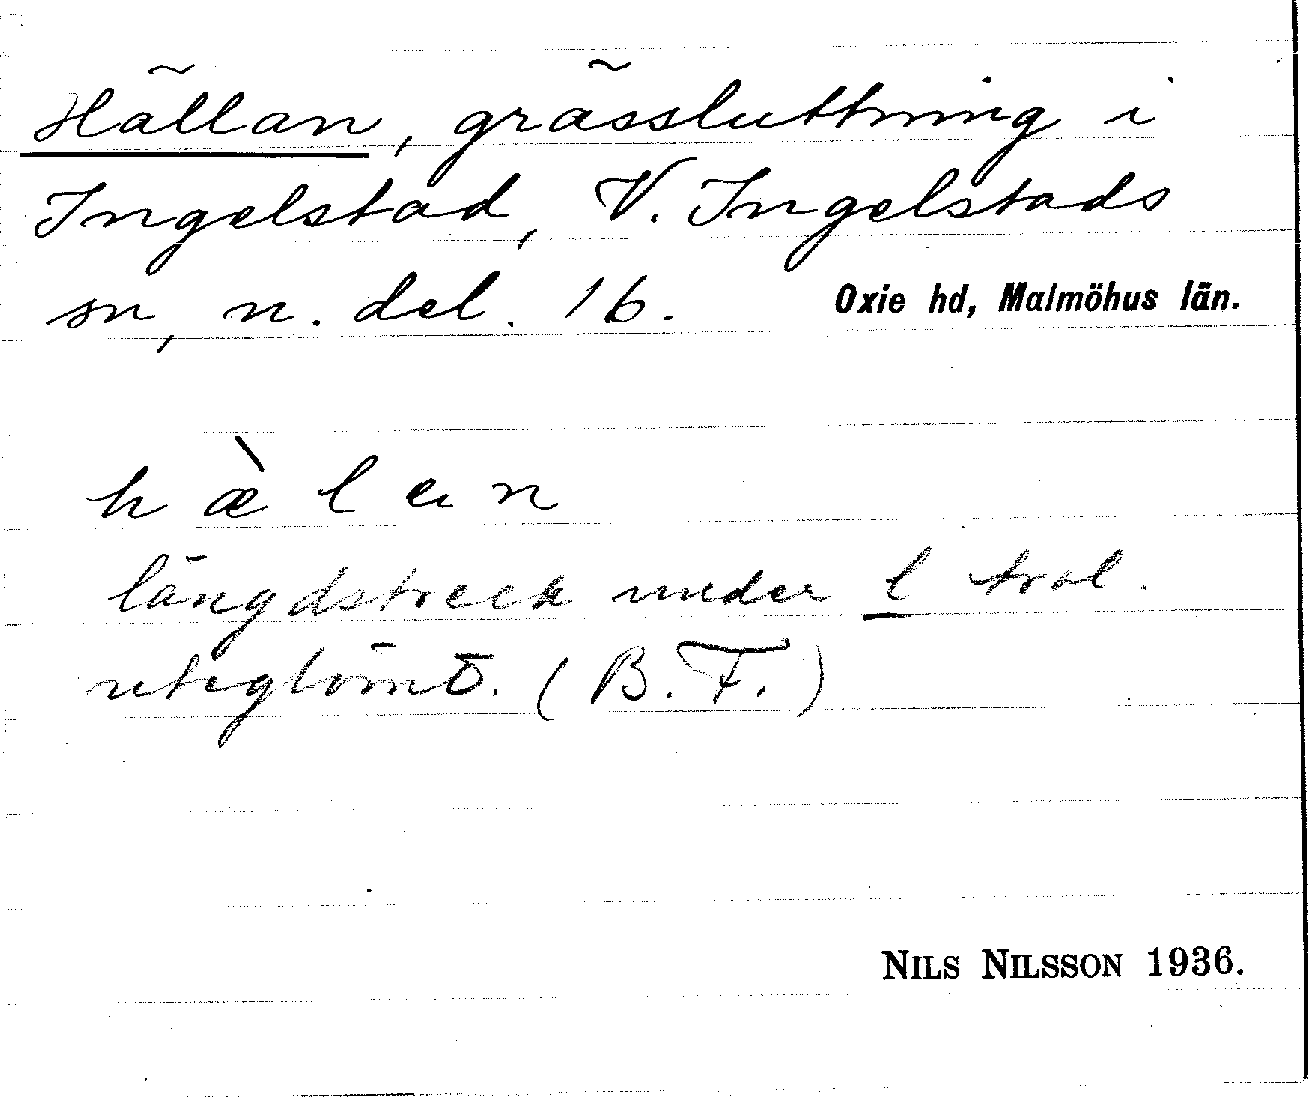 Hällan, grässluttning i
Ingelstad, V. Ingelstads
sn, n. del. 16. Oxie hd, Malmöhus län.
h æ̀ l a n
längdstreck under l trol.
uteglömt. (B. F.)
NILS NILSSON 1936.